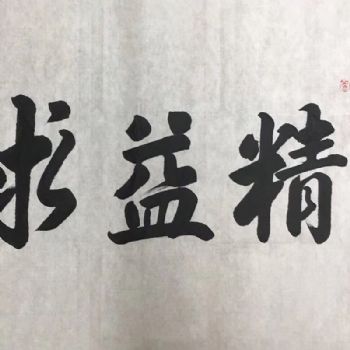 精益求